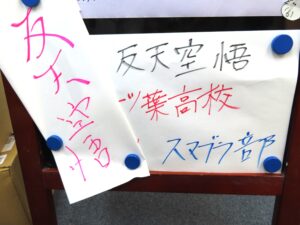 反天空悟
反天空悟
一ツ葉高校
スマブラ部